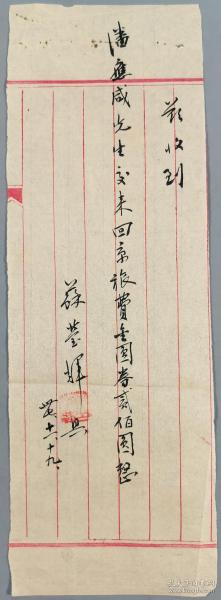 茲收到
潘應咸先生交來回京旅費金圓券貳佰圓整
蘇瑩輝具
十一、十九、